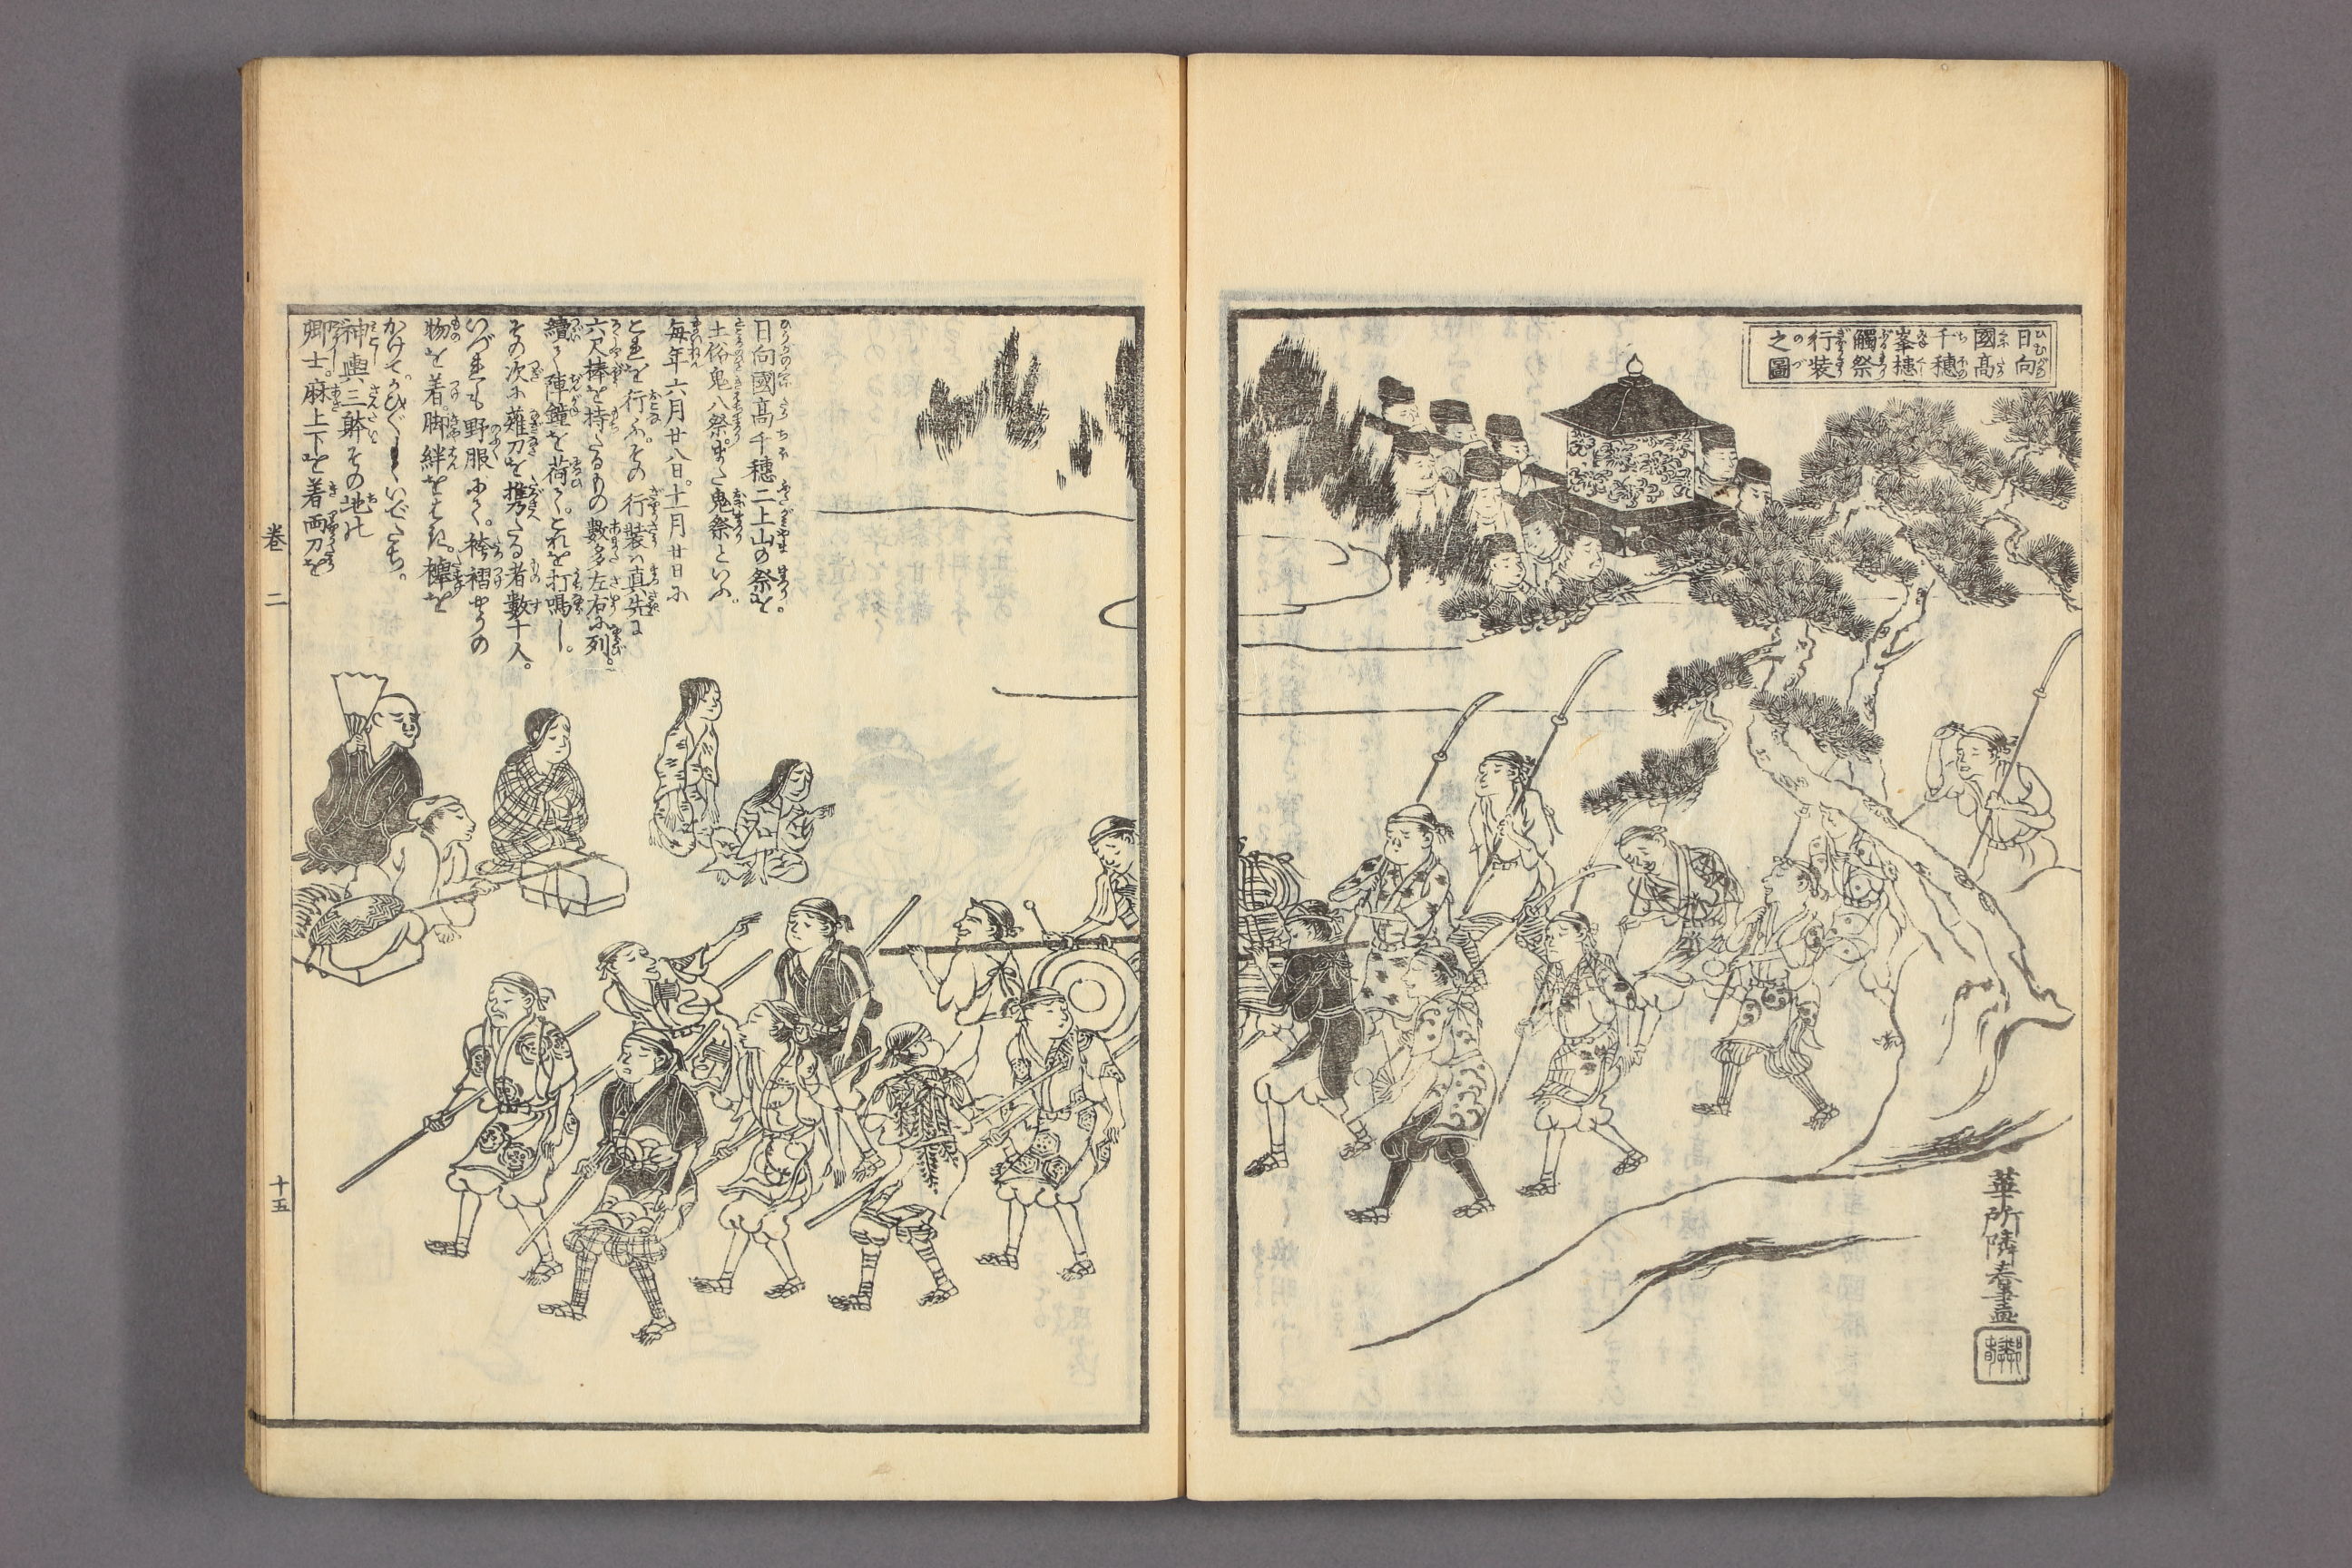 日向
國高
千穂
峯槵
觸祭
行装
之圖
華所隣春筆画
日向國高千穂二上山の祭を
土俗鬼八祭。また鬼祭といふ。
毎年六月廿八日。十一月廿日に
これを行ふ。その行装は真先に
六尺棒を持たるもの数多左右に列。
續て陣鐘を荷て。これを打鳴し。
その次に薙刀を携たる者數十人。
いづれも野服にて。袴褶やうの
物を着。脚絆をはき。襷を
かけて。かひ〴〵しくいでたち。
神輿三躰その地の
卿士。麻上下を着両刀を
巻二
十五